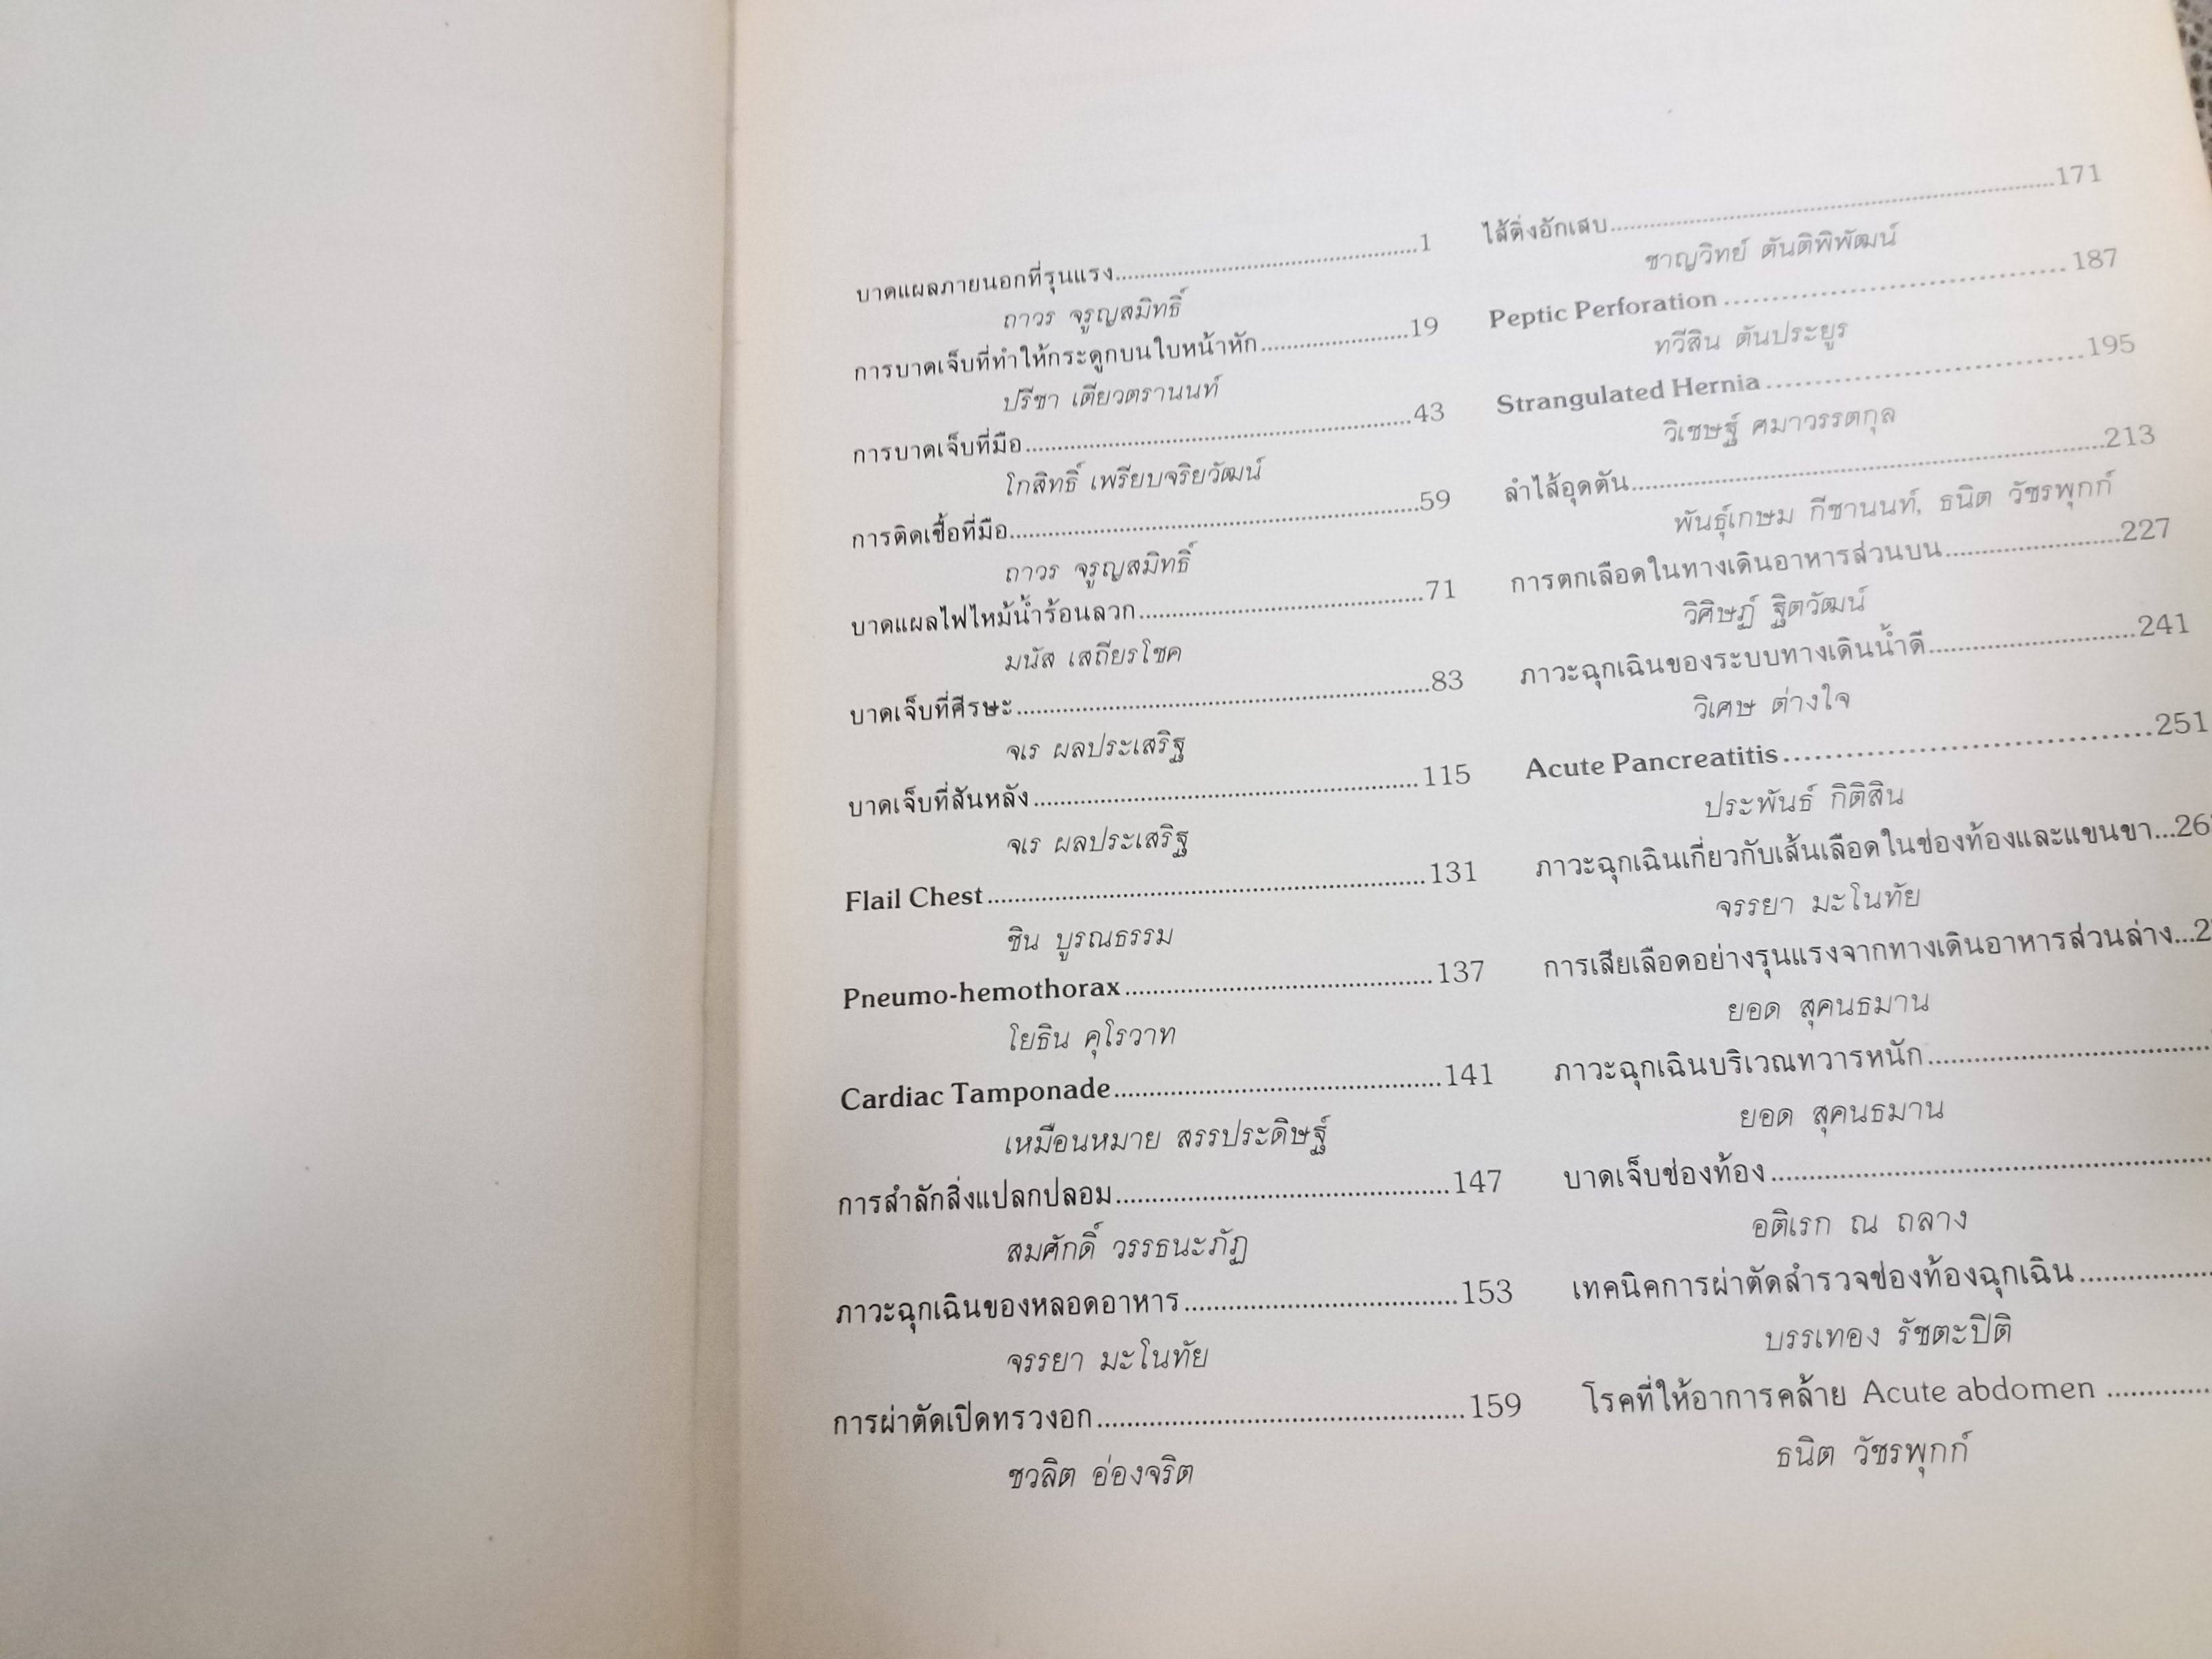 บาดแผลภายนอกที่รุนแรง..........1
ถาวร จรูญสมิทธิ์
การบาดเจ็บที่ทำให้กระดูกบนใบหน้าหัก..........19
ปรีชา เตียวตรานนท์
การบาดเจ็บที่มือ..........43
โกสิทธิ์ เพรียบจริยวัฒน์
การติดเชื้อที่มือ..........59
ถาวร จรูญสมิทธิ์
บาดแผลไฟไหม้น้ำร้อนลวก..........71
มนัส เสถียรโชค
บาดเจ็บที่ศีรษะ..........83
จเร ผลประเสริฐ
บาดเจ็บที่สันหลัง..........115
จเร ผลประเสริฐ
Flail Chest..........131
ชิน บูรณธรรม
Pneumo-hemothorax..........137
โยธิน คุโรวาท
Cardiac Tamponade..........141
เหมือนหมาย สรรประดิษฐ์
การสำลักสิ่งแปลกปลอม..........147
สมศักดิ์ วรรธนะภัฏ
ภาวะฉุกเฉินของหลอดอาหาร..........153
จรรยา มะโนทัย
การผ่าตัดเปิดทรวงอก..........159
ชวลิต อ่องจริต
ไส้ติ่งอักเสบ..........171
ชาญวิทย์ ตันติพิพัฒน์
Peptic Perforation..........187
ทวีสิน ตันประยูร
Strangulated Hernia..........195
วิเชษฐ์ ศมาวรรตกุล
ลำไส้อุดตัน..........213
พันธุ์เกษม กีชานนท์, ธนิต วัชรพุกก์
การตกเลือดในทางเดินอาหารส่วนบน..........227
วิศิษฏ์ ฐิตวัฒน์
ภาวะฉุกเฉินของระบบทางเดินน้ำดี..........241
วิเศษ ต่างใจ
Acute Pancreatitis..........251
ประพันธ์ กิติสิน
ภาวะฉุกเฉินเกี่ยวกับเส้นเลือดในช่องท้องและแขนขา...
จรรยา มะโนทัย
การเสียเลือดอย่างรุนแรงจากทางเดินอาหารส่วนล่าง...
ยอด สุคนธมาน
ภาวะฉุกเฉินบริเวณทวารหนัก..........
ยอด สุคนธมาน
บาดเจ็บช่องท้อง..........
อติเรก ณ ถลาง
เทคนิคการผ่าตัดสำรวจช่องท้องฉุกเฉิน..........
บรรเทอง รัชตะปิติ
โรคที่ให้อาการคล้าย Acute abdomen ..........
ธนิต วัชรพุกก์